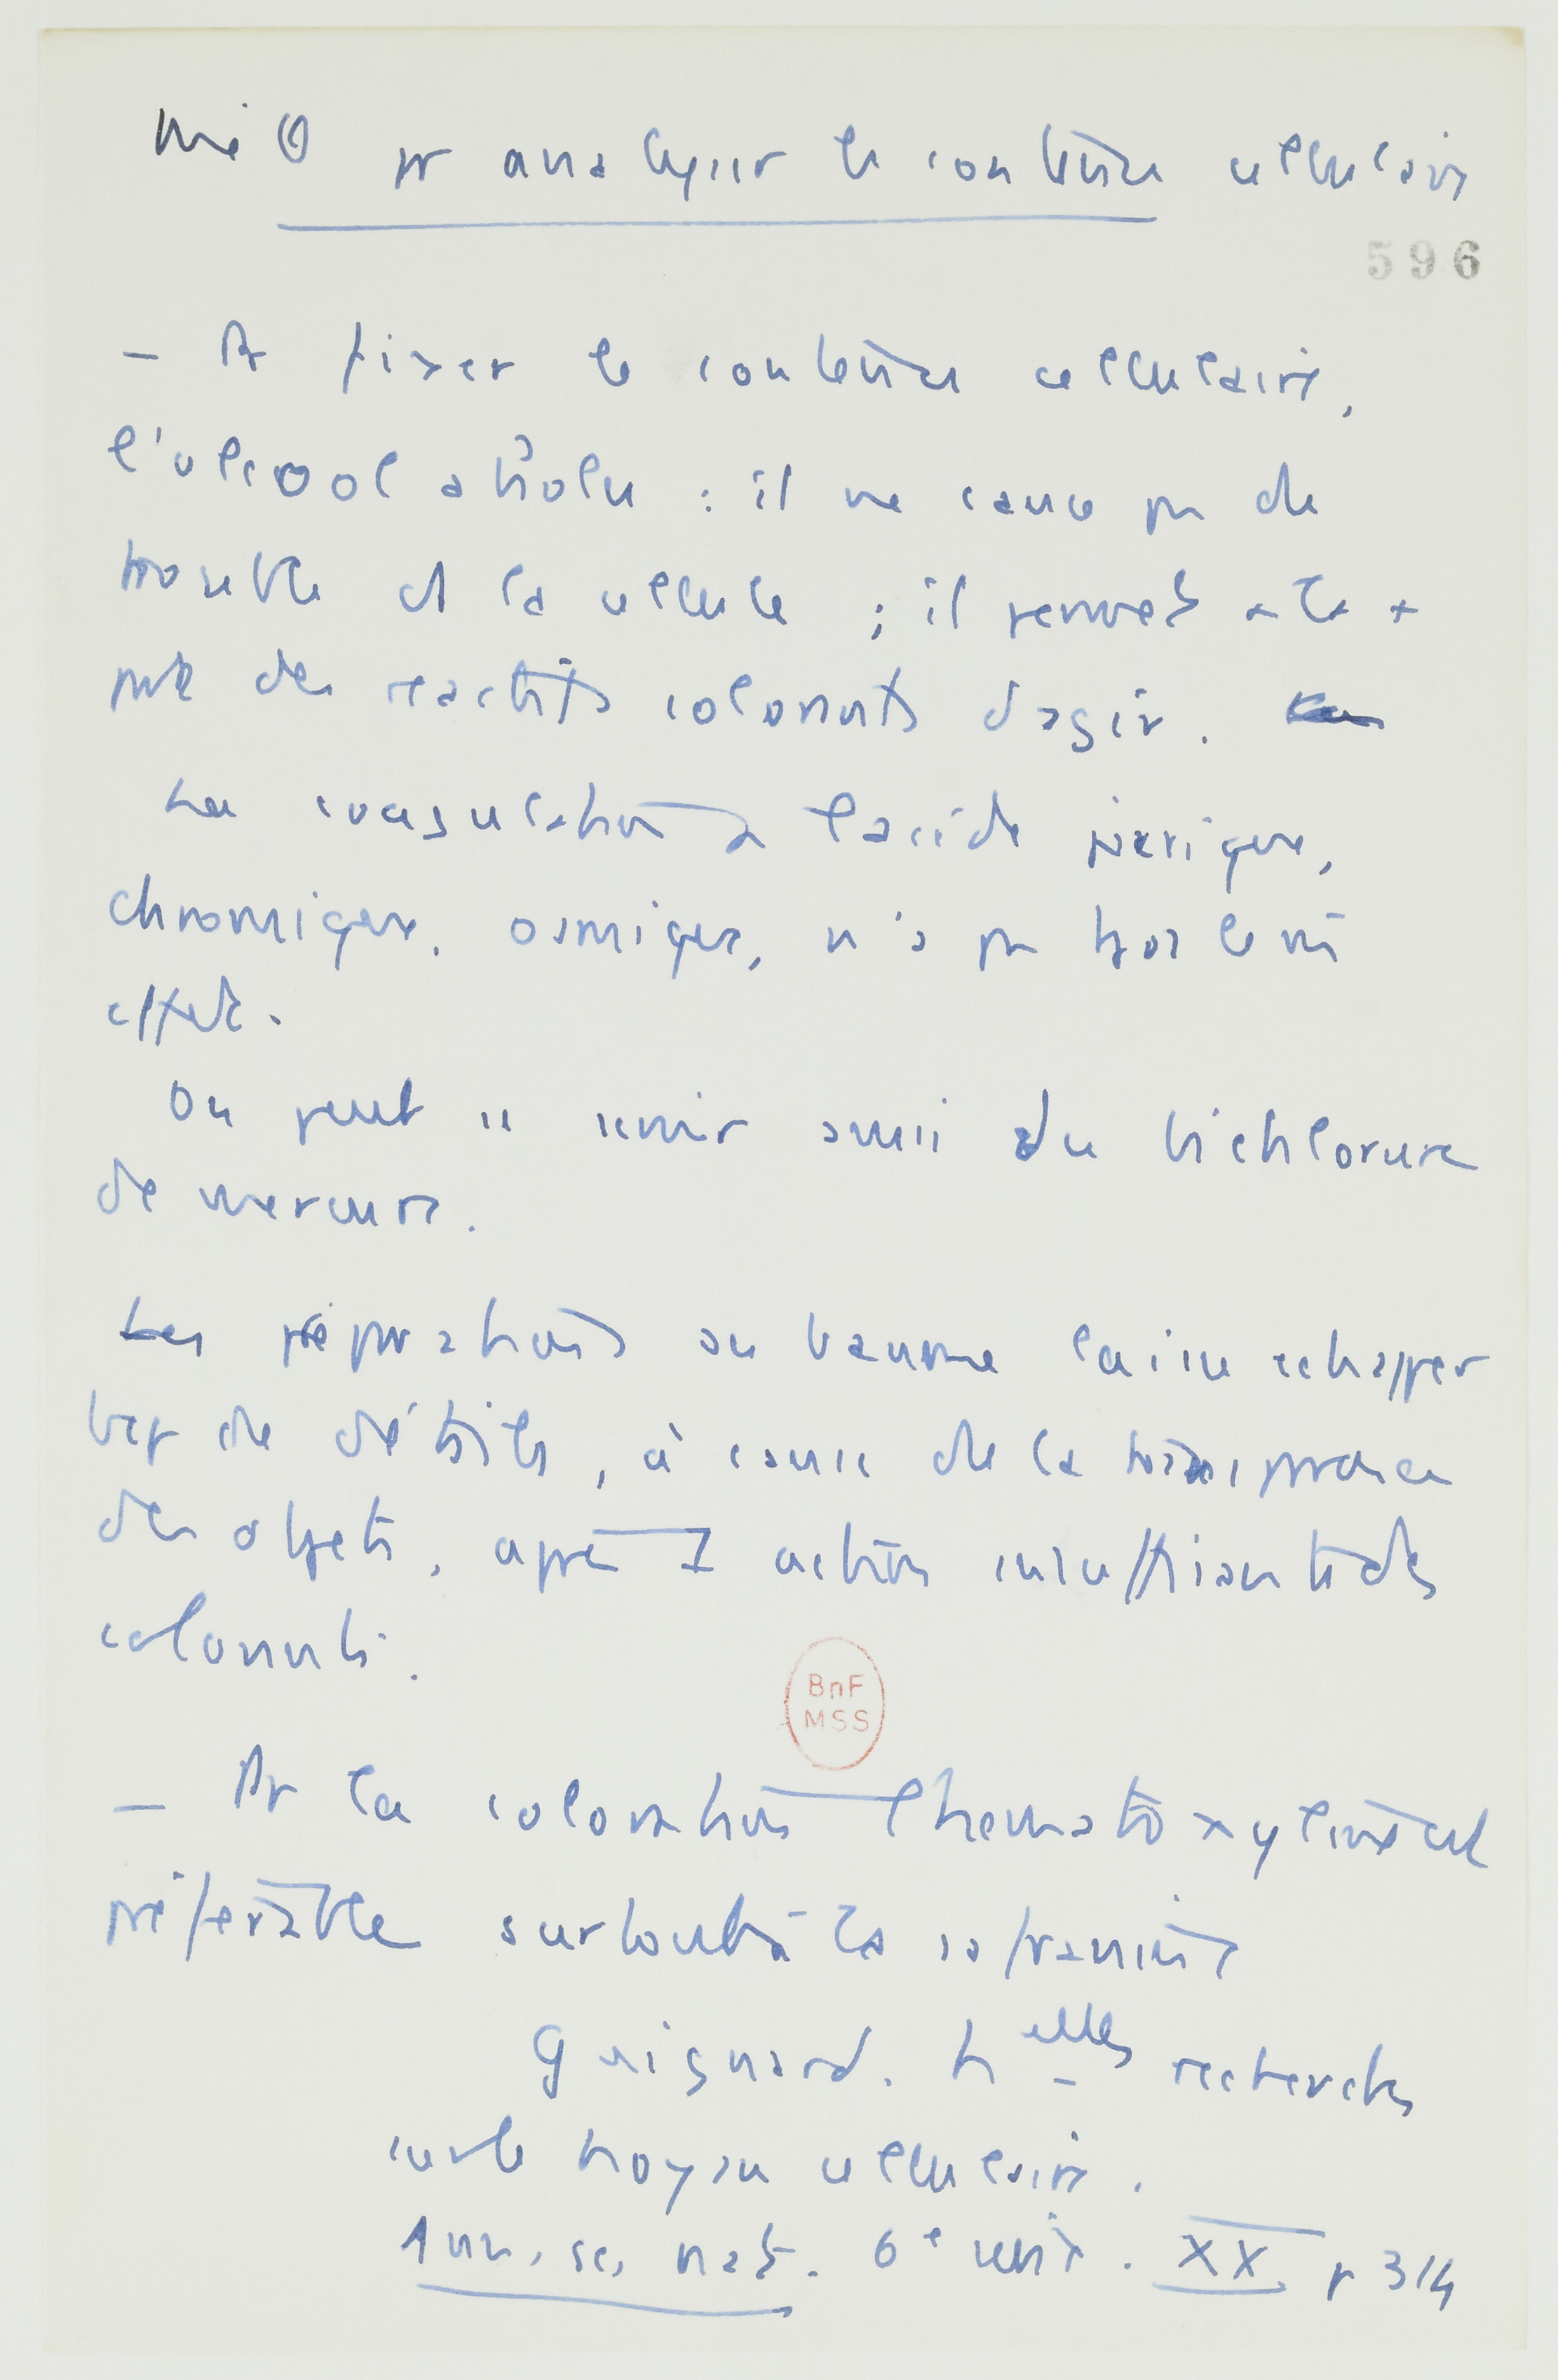 Mé θ pr analyser le contenu cellulaire
596
– Pr fixer le contenu cellulaire,
l'alcool absolu : il ne cause pas de
trouble ds la cellule ; il permet
des reactifs colorants d'agir.
La coagulation à l'acide picrique,
chromique, osmique, n'a pas tjs le mê
effet.
On peut se servir aussi du bichlorure
de mercure.
Les préparations au baume laisse echapper
bcp de détails, à cause de la transparence
des objets, après 1 action insuffisante des
colorants.
– Pr la coloration l'hematoxyline est
préférable surtout à la safranine
Guignard. Nelles recherches
sur le noyau cellulaire.
Ann. sc. nat. 6e serie. XX p 314
BnF
MSS